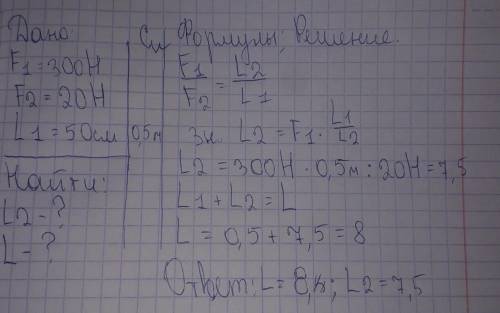 Дано:
F1 = 300H
F2 = 20H
L1 = 50см
Найти:
L2 - ?
L - ?
Си
0,5м
Формулы, Решение.
F1/F2 = L2/L1
Зн. L2 = F1 · L1/L2
L2 = 300H · 0,5м : 20H = 7,5
L1 + L2 = L
L = 0,5 + 7,5 = 8
Ответ: L = 8м; L2 = 7,5